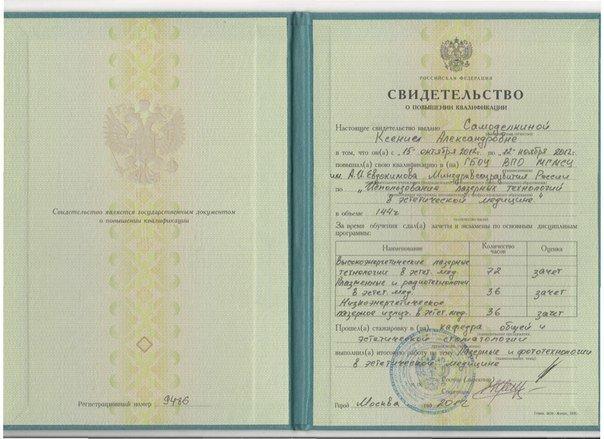 Свидетельство является государственным документом
о повышении квалификации
Регистрационный номер 9486
РОССИЙСКАЯ ФЕДЕРАЦИЯ
СВИДЕТЕЛЬСТВО
О ПОВЫШЕНИИ КВАЛИФИКАЦИИ
Настоящее свидетельство выдано Самоделкиной
Ксении Александровне
в том, что он(а) с „15" октября 2012г. по „22" ноября 2012г.
повышал(а) свою квалификацию в (на) ГБОУ ВПО МГМСУ
им. А.И. Евдокимова Минздравсоцразвития России
по „Использование лазерных технологий
в эстетической медицине"
в объеме 144ч
За время обучения сдал(а) зачеты и экзамены по основным дисциплинам
программы:
Наименование Количество часов Оценка
Высокоэнергетические лазерные
технологии в эстет. мед. 72 зачет
Плазменные и радиотехнологии
в эстет. мед. 36 зачет
Низкоэнергетическое
лазерное излуч. в эстет. мед. 36 зачет
Прошел(а) стажировку в (на) кафедра общей и
эстетической стоматологии
выполнил(а) итоговую работу на тему Лазерные и фототехнологии
в эстетической медицине
Ректор (директор)
Секретарь
Город Москва год 2012